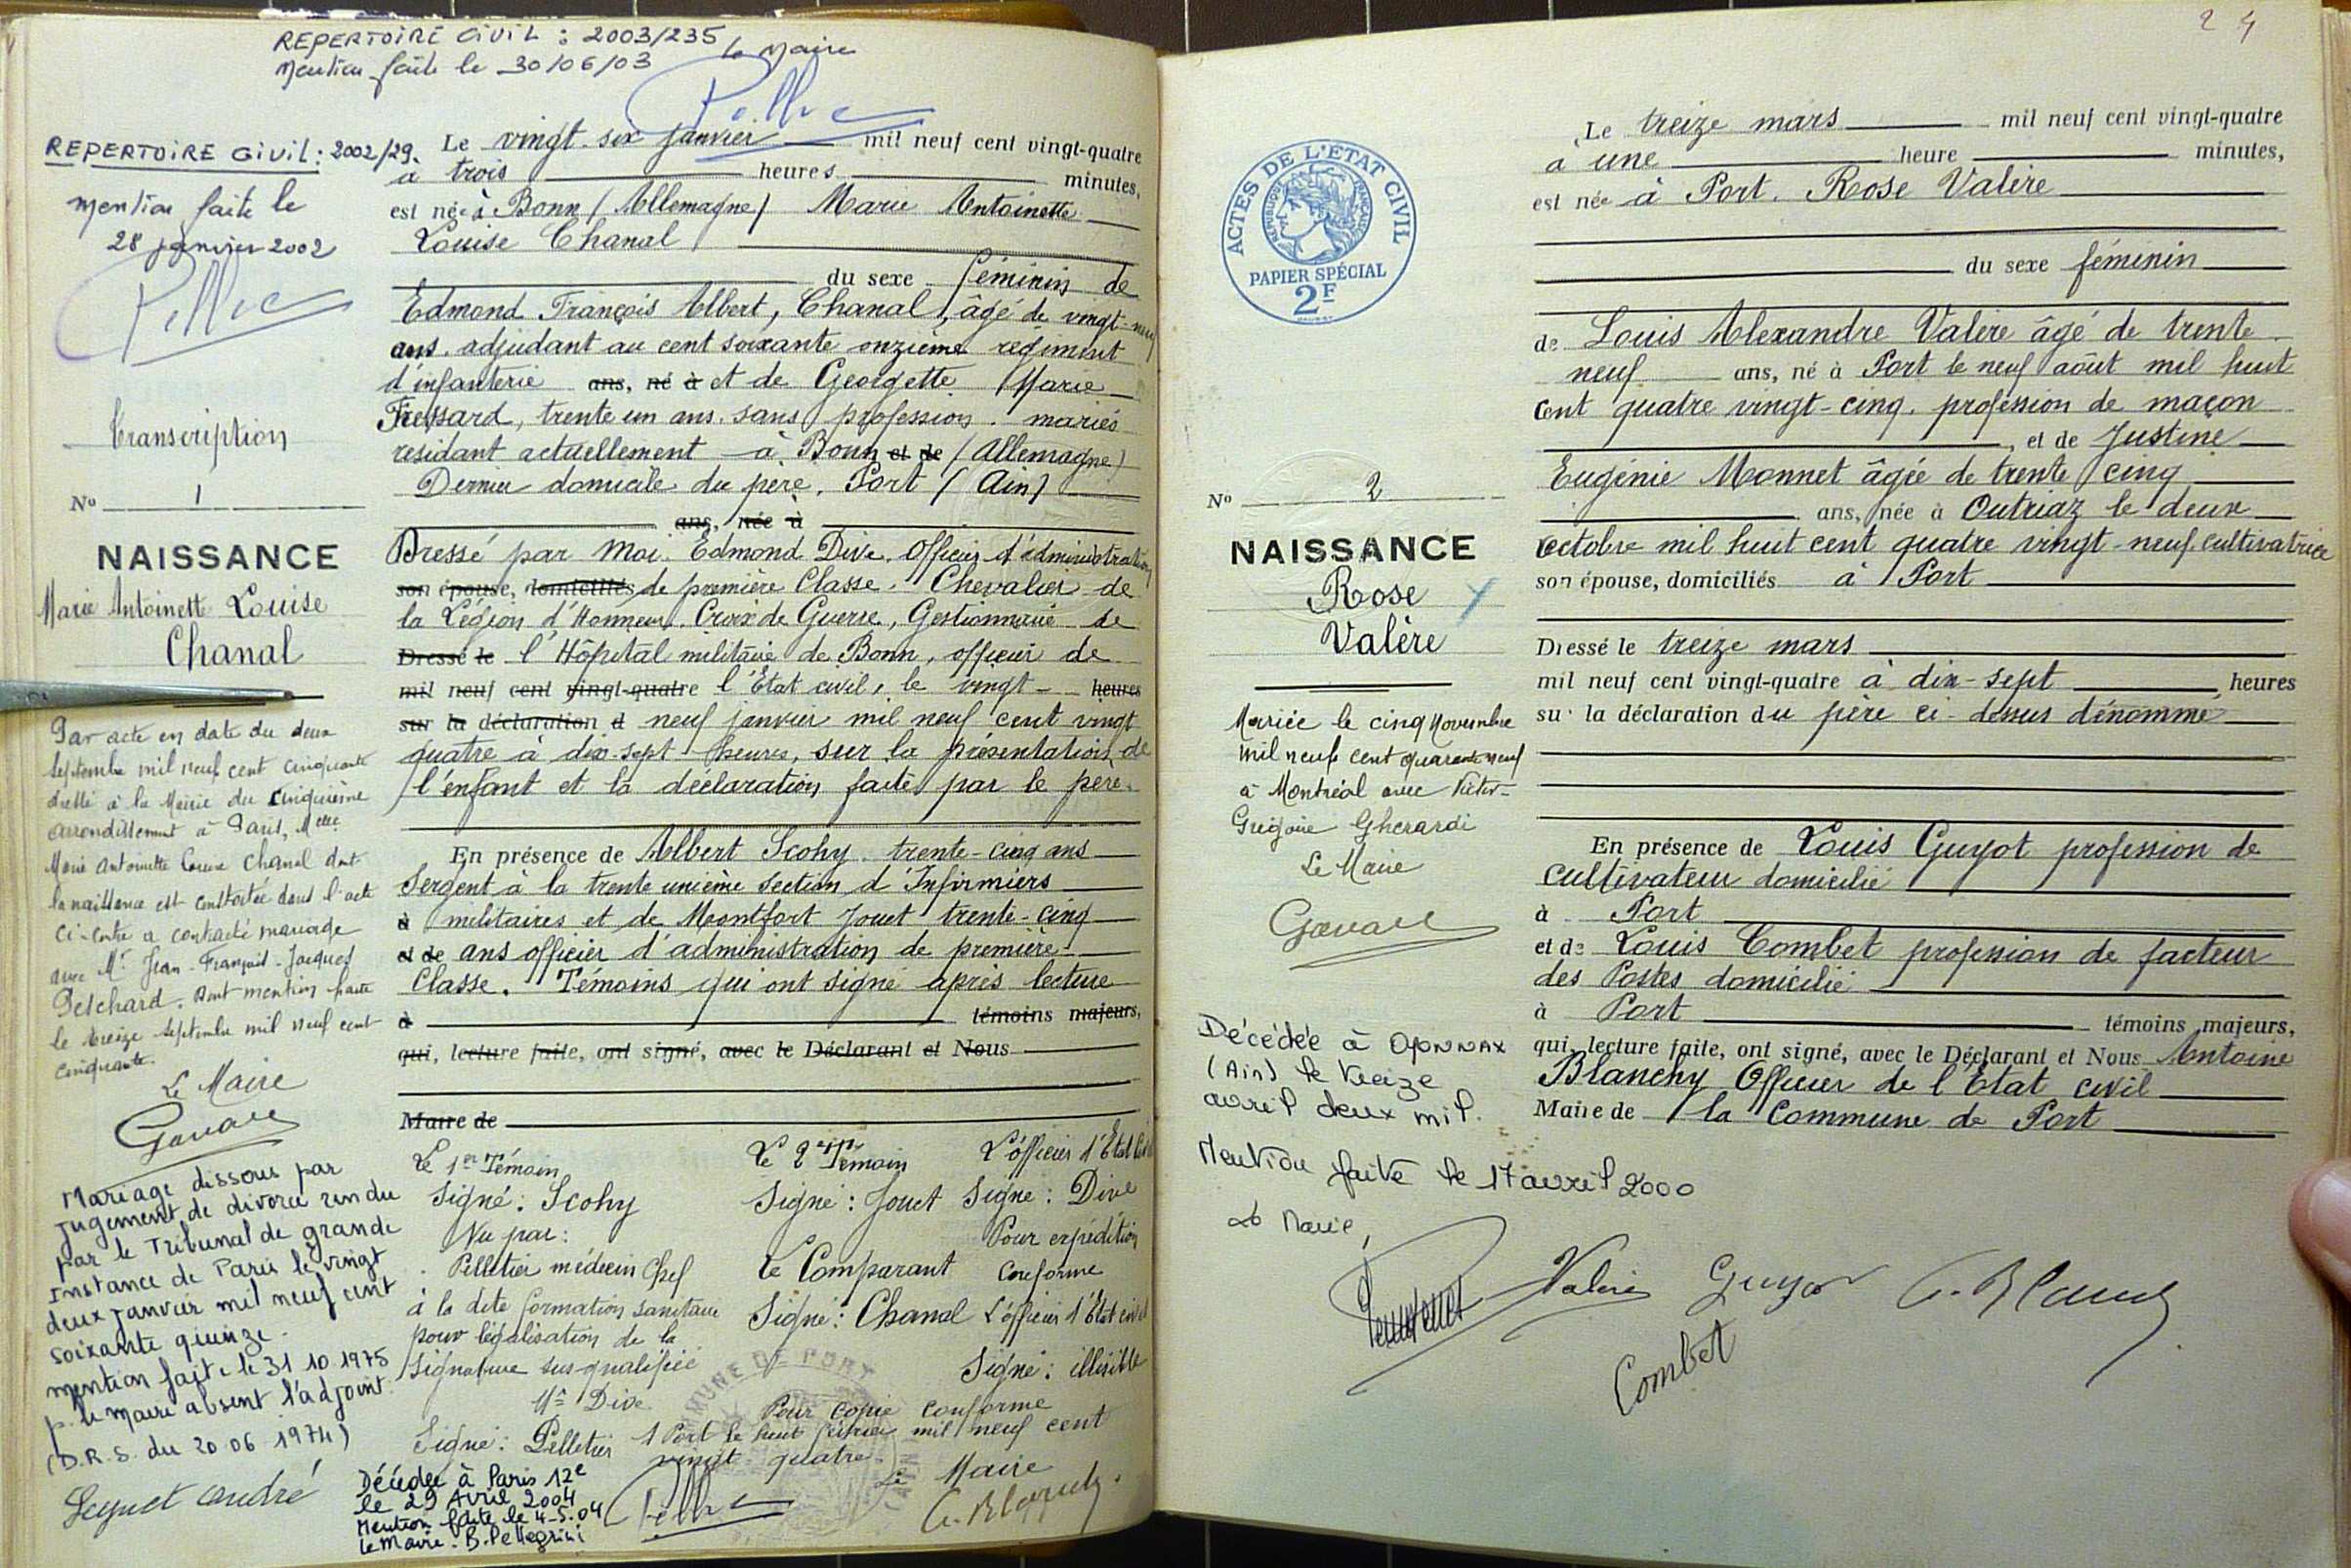 REPERTOIRE CIVIL : 2003/235
Mention faite le 30/06/03
Le Maire
REPERTOIRE CIVIL : 2002/29.
mention faite le
28 janvier 2002
Transcription
No 1
NAISSANCE
Marie Antoinette Louise
Chanal
Par acte en date du deux
septembre mil neuf cent cinquante
dressé à la Mairie du cinquième
arrondissement à Paris, Melle
Marie Antoinette Louise Chanal dont
la naissance est constatée dans l'acte
ci-contre a contracté mariage
avec Mr Jean-François-Jacques
dont mention faite
le treize septembre mil neuf cent
cinquante.
Le Maire
Mariage dissous par
jugement de divorce rendu
par le Tribunal de grande
Instance de Paris le vingt
deux janvier mil neuf cent
soixante quinze.
mention faite le 31 10 1975
p. le maire absent l'adjoint.
(D.R.S. du 20 06 1974)
André
Le vingt-six janvier mil neuf cent vingt-quatre
à trois heures minutes,
est née à Bonn (Allemagne) Marie Antoinette
Louise Chanal
du sexe féminin de
Edmond François Albert, Chanal, âgé de vingt-neuf
ans. adjudant au cent soixante onzième régiment
d'infanterie ans, né à et de Georgette Marie
Fressard, trente un ans. sans profession. mariés
résidant actuellement à Bonn et de (Allemagne)
Dernier domicile du père. Port (Ain)
ans, née à
Dressé par Moi. Edmond Dive. Officier d'administration
son épouse, domiciliés de première Classe. Chevalier de
la Légion d'Honneur. Croix de Guerre, Gestionnaire de
Dressé le l'Hôpital militaire de Bonn, officier de
mil neuf cent vingt-quatre l'Etat civil, le vingt- heures
sur la déclaration d neuf janvier mil neuf cent vingt
quatre à dix-sept heures, sur la présentation de
l'enfant et la déclaration faite par le père.
En présence de Albert Scohy. trente-cinq ans
Sergent à la trente unième section d'Infirmiers
à militaires et de Montfort Jouet trente-cinq
et de ans officier d'administration de première
Classe. Témoins qui ont signé après lecture
à témoins majeurs,
qui, lecture faite, ont signé, avec le Déclarant et Nous
Maire de
Le 1er Témoin Le 2e Témoin L'officier d'Etat Civil
Signé : Scohy Signé : Jouet Signé : Dive
Vu par : Pour expédition
Pelletier médecin Chef Le Comparant conforme
à la dite formation sanitaire Signé : Chanal L'officier d'Etat civil
pour légalisation de la
signature sus-qualifiée Signé : illisible
Mr Dive
Pour copie conforme
Signé : Pelletier à Port le huit février mil neuf cent
vingt quatre.
Le Maire
COMMUNE DE PORT
Décédée à Paris 12e
le 29 Avril 2004
Mention faite le 4-5-04
Le Maire. B. Pellegrini
2 4
ACTES DE L'ETAT CIVIL
REPUBLIQUE FRANÇAISE
PAPIER SPÉCIAL
2F
No 2
NAISSANCE
Rose
Valère
Mariée le cinq Novembre
mil neuf cent quarante neuf
à Montréal avec Victor-
Grégoire Gherardi
Le Maire
Décédée à OYONNAX
(Ain) le treize
avril deux mil.
Mention faite le 17 avril 2000
Le Maire,
Le treize mars mil neuf cent vingt-quatre
à une heure minutes,
est née à Port. Rose Valère
du sexe féminin
de Louis Alexandre Valère âgé de trente
neuf ans, né à Port le neuf août mil huit
cent quatre vingt-cinq. profession de maçon
, et de Justine
Eugénie Monnet âgée de trente cinq
ans, née à Outriaz le deux
octobre mil huit cent quatre vingt-neuf. cultivatrice
son épouse, domiciliés à Port
Dressé le treize mars
mil neuf cent vingt-quatre à dix-sept heures
sur la déclaration du père ci-dessus dénommé
En présence de Louis Guyot profession de
cultivateur domicilié
à Port
et de Louis Combet profession de facteur
des Postes domicilié
à Port témoins majeurs,
qui, lecture faite, ont signé, avec le Déclarant et Nous Antoine
Blanchy Officier de l'Etat civil
Maire de la Commune de Port
Valère Guyot
Combet